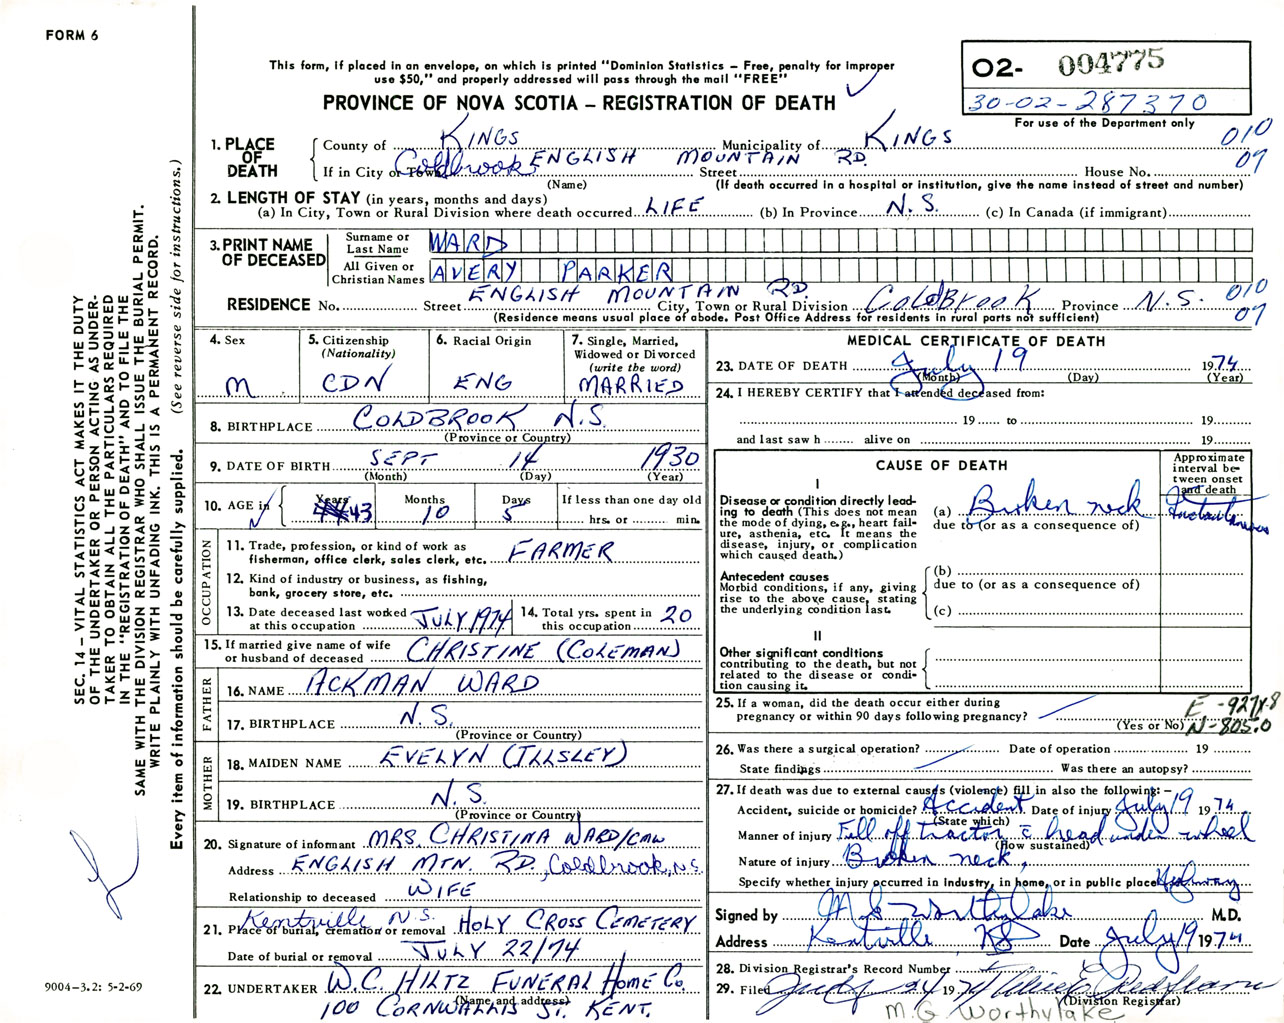 FORM 6
This form, if placed in an envelope, on which is printed "Dominion Statistics – Free, penalty for improper
use $50," and properly addressed will pass through the mail "FREE"
PROVINCE OF NOVA SCOTIA – REGISTRATION OF DEATH
O2- 004775
30-02-287370
For use of the Department only
1. PLACE OF DEATH
County of KINGS Municipality of KINGS 010
If in City or Town Coldbrook ENGLISH MOUNTAIN RD. Street House No. 07
(Name) (If death occurred in a hospital or institution, give the name instead of street and number)
2. LENGTH OF STAY (in years, months and days)
(a) In City, Town or Rural Division where death occurred LIFE (b) In Province N.S. (c) In Canada (if immigrant)
3. PRINT NAME OF DECEASED
Surname or Last Name WARD
All Given or Christian Names AVERY PARKER
RESIDENCE No. Street ENGLISH MOUNTAIN RD. City, Town or Rural Division COLDBROOK Province N.S. 010
07
(Residence means usual place of abode. Post Office Address for residents in rural parts not sufficient)
4. Sex M.
5. Citizenship (Nationality) CDN
6. Racial Origin ENG
7. Single, Married, Widowed or Divorced (write the word) MARRIED
8. BIRTHPLACE COLDBROOK N.S.
(Province or Country)
9. DATE OF BIRTH SEPT 14 1930
(Month) (Day) (Year)
10. AGE in Years 43 Months 10 Days 5 If less than one day old
hrs. or min.
OCCUPATION
11. Trade, profession, or kind of work as
fisherman, office clerk, sales clerk, etc. FARMER
12. Kind of industry or business, as fishing,
bank, grocery store, etc.
13. Date deceased last worked
at this occupation JULY 1974
14. Total yrs. spent in
this occupation 20
15. If married give name of wife
or husband of deceased CHRISTINE (COLEMAN)
FATHER
16. NAME ACKMAN WARD
17. BIRTHPLACE N.S.
(Province or Country)
MOTHER
18. MAIDEN NAME EVELYN (ILLSLEY)
19. BIRTHPLACE N.S.
(Province or Country)
20. Signature of informant MRS. CHRISTINA WARD/CMW
Address ENGLISH MTN. RD., Coldbrook, N.S.
Relationship to deceased WIFE
21. Place of burial, cremation or removal Kentville N.S. HOLY CROSS CEMETERY
Date of burial or removal JULY 22/74
22. UNDERTAKER W.C. HILTZ FUNERAL HOME CO.
(Name and address)
100 CORNWALLIS ST. KENT.
MEDICAL CERTIFICATE OF DEATH
23. DATE OF DEATH July 19 1974
(Month) (Day) (Year)
24. I HEREBY CERTIFY that I attended deceased from:
19 to 19
and last saw h alive on 19
CAUSE OF DEATH
Approximate interval between onset and death
I
Disease or condition directly leading to death (This does not mean the mode of dying, e.g., heart failure, asthenia, etc. It means the disease, injury, or complication which caused death.)
(a) Broken neck Instantaneous
due to (or as a consequence of)
Antecedent causes
Morbid conditions, if any, giving rise to the above cause, stating the underlying condition last.
(b)
due to (or as a consequence of)
(c)
II
Other significant conditions
contributing to the death, but not related to the disease or condition causing it.
25. If a woman, did the death occur either during
pregnancy or within 90 days following pregnancy?
(Yes or No)
N-805.0
26. Was there a surgical operation? Date of operation 19
State findings Was there an autopsy?
27. If death was due to external causes (violence) fill in also the following:–
Accident, suicide or homicide? Accident Date of injury July 19 1974
(State which)
Manner of injury Fell off tractor c̄ head under wheel
(How sustained)
Nature of injury Broken neck,
Specify whether injury occurred in industry, in home, or in public place Highway
Signed by M G Worthylake M.D.
Address Kentville NS Date July 19 1974
28. Division Registrar's Record Number
29. Filed July 24 1974
(Division Registrar)
M.G Worthylake
SEC. 14 – VITAL STATISTICS ACT MAKES IT THE DUTY
OF THE UNDERTAKER OR PERSON ACTING AS UNDER-
TAKER TO OBTAIN ALL THE PARTICULARS REQUIRED
IN THE "REGISTRATION OF DEATH" AND TO FILE THE
SAME WITH THE DIVISION REGISTRAR WHO SHALL ISSUE THE BURIAL PERMIT.
WRITE PLAINLY WITH UNFADING INK. THIS IS A PERMANENT RECORD.
Every item of information should be carefully supplied. (See reverse side for instructions.)
9004-3.2: 5-2-69